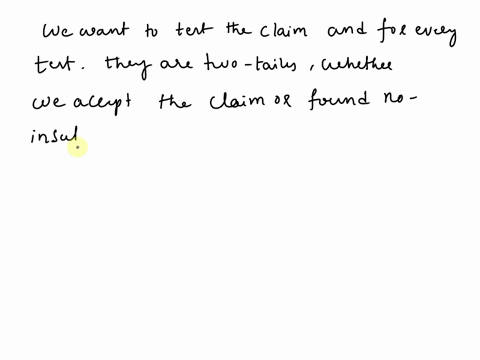 We want to test the claim and for every
test. they are two-tails, whether
we accept the claim or found no-
insul